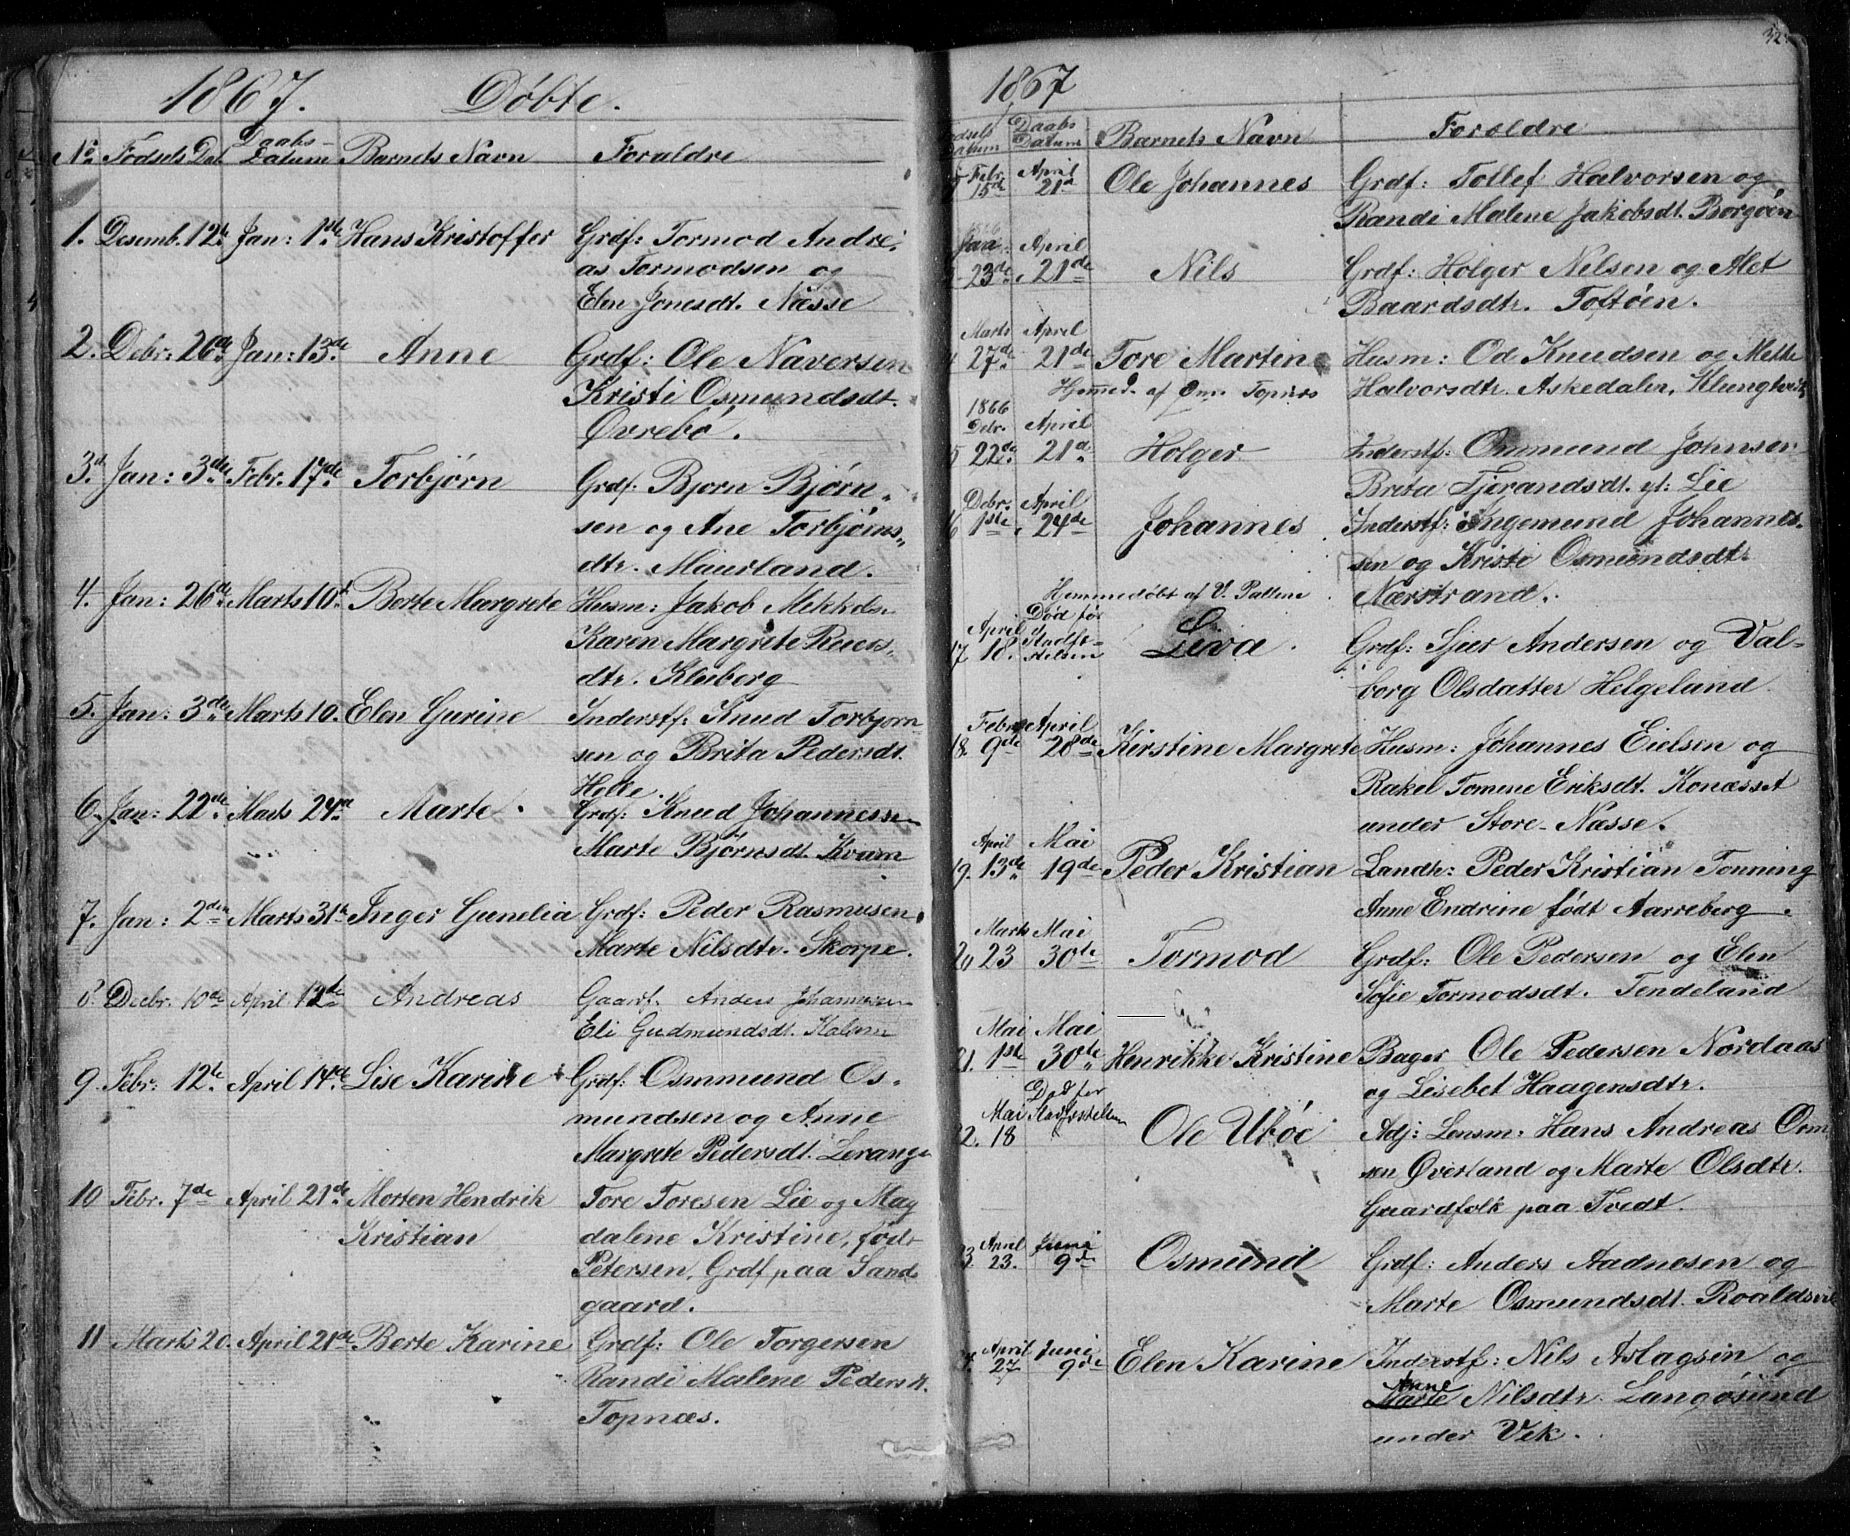 1867. Døbte.
No Fødsels Dat Daabs-Datum Barnets Navn Foraldre
1. Desemb. 12te Jan: 1ste Hans Kristoffer Grdf: Tormod Andre-
as Tormodsen og
Elen Jonesdt. Næsse
2. Debr: 26de Jan: 13de Anne Grdf: Ole Naversen
Kristi Osmundsdt.
Øvrebø.
3. Jan: 3de Febr. 17de Torbjørn Grdf: Bjørn Bjørn-
sen og Ane Torbjørns-
dtr. Maurland.
4. Jan: 26de Marts 10d Berte Margrete Husm: Jakob Mikkels
Karen Margrete
dtr. Kleiberg
5. Jan: 3de Marts 10. Elen Gurine Inderstf: Knud Torbjørn
sen og Brita Pedersdt.
Helle.
6. Jan: 22de Marts 24d Marte. Grdf: Knud Johannessen
Marte Bjørnsdt. Kvam
7. Jan: 2den Marts 31te Inger Gunelia Grdf: Peder Rasmusen
Marte Nilsdtr. Skorpe.
8. Decbr. 10de April 12de Andreas Gaardf. Anders Johannesen
Eli Gudmundsdt.
9. Febr: 12te April 14de Lise Karine Grdf: Osmmund Os-
mundsen og Anne
Margrete Pedersdt. Lerange
10 Febr. 7de April 21de Morten Hendrik Tore Toresen Lie og Mag
Kristian dalene Kristine, født
Petersen, Grdf paa Sand-
gaard.
11 Marts 20. April 21de Berte Karine Grdf: Ole Torgersen
Randi Malene Pedersdt.
Topnæs.
32
1867
Datum Daabs Datum Barnets Navn Foroldre
Febr. 15de April 21d Ole Johannes Grdf: Tollef Halvorsen og
Randi Malene Jakobsdt. Borgøen
1866
Jan: 23de April 21de Nils Grdf: Holger Nilsen og Alet
Baardsdtr. Toftøen.
Marts 27de April 21de Tore Martin Husm: Od Knudsen og Mette
Hjemmed. af Om. Topnes Halvorsdtr. Askedalen, Klungtveit
1866
Debr. 22de April 21d Holger Inderstf: Ommund Johnsen
Brita Tjerandsdt. yt: Lie
Debr. 1ste April 24de Johannes Inderstf: Ingemund Johannes-
sen og Kristi Osmundsdtr
Hemmedøbt af V. Nærstrand.
17 April 18. Død før Stadfæstelsen Liva. Grdf: Sjur Andersen og Val-
borg Olsdatter Helgeland.
18. Febr 9de April 28de Kirstine Margrete Husm: Johannes Eielsen og
Rakel Tomine Eriksdt. Konæsset
under Store-Næsse.
19. April 13de Mai 19de Peder Kristian Landh: Peder Kristian Tonning
Anne Endrine født Aarreberg.
20 Marts 23 Mai 30te Tormod Grdf: Ole Pedersen og Elen
Sofie Tormodsdt. Tendeland
21. Mai 1ste Mai 30te Henrikke Kristine Bager Ole Pedersen Nordaas
og Lisebet Haagensdtr.
22. Mai 18 Død før Stadfæstelsen Ole Ubøe Adj: Lensm: Hans Andreas Om
sen Øverland og Marte Olsdtr.
Gaardfolk paa Tvedt.
April 23. Juni 9de Osmund Grdf: Anders Aadnesen og
Marte Osmundsdt. Roaldsvik
April 27 Juni 9de Elen Karine Inderstf: Nils Aslagsin og
Anne
Marte Nilsdtr. Langøsund
under Vik.